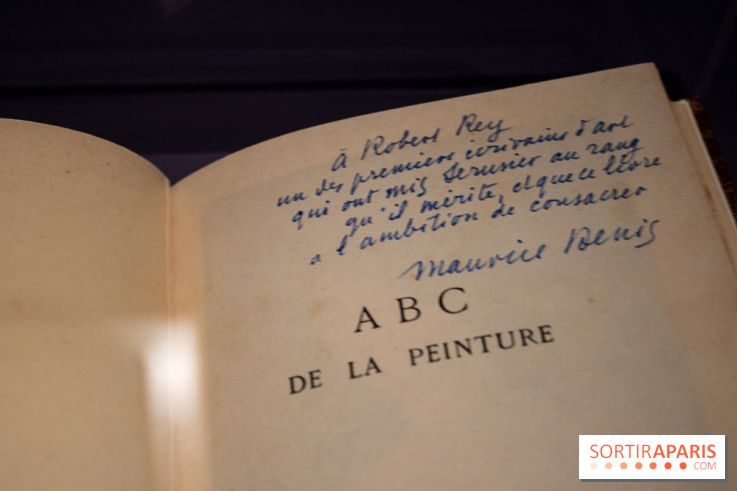 À Robert Rey
un des premiers écrivains d'art
qui ont mis Serusier au rang
qu'il mérite, et que ce livre
a l'ambition de consacrer
Maurice Denis
ABC
DE LA PEINTURE
SORTIRAPARIS
.COM